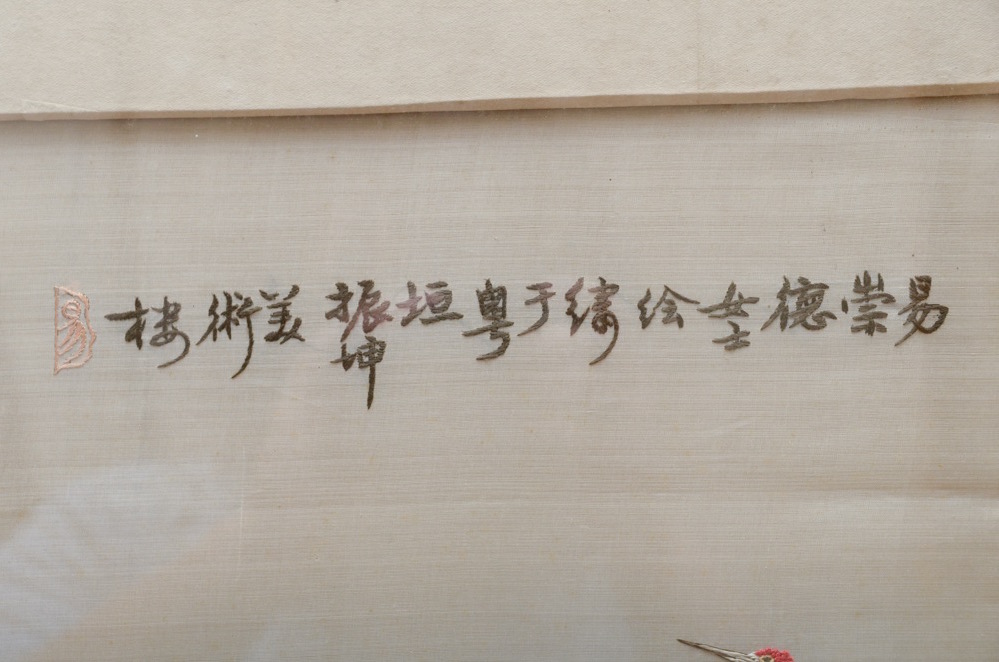 易崇德女士绘繡于粤垣振坤美術楼